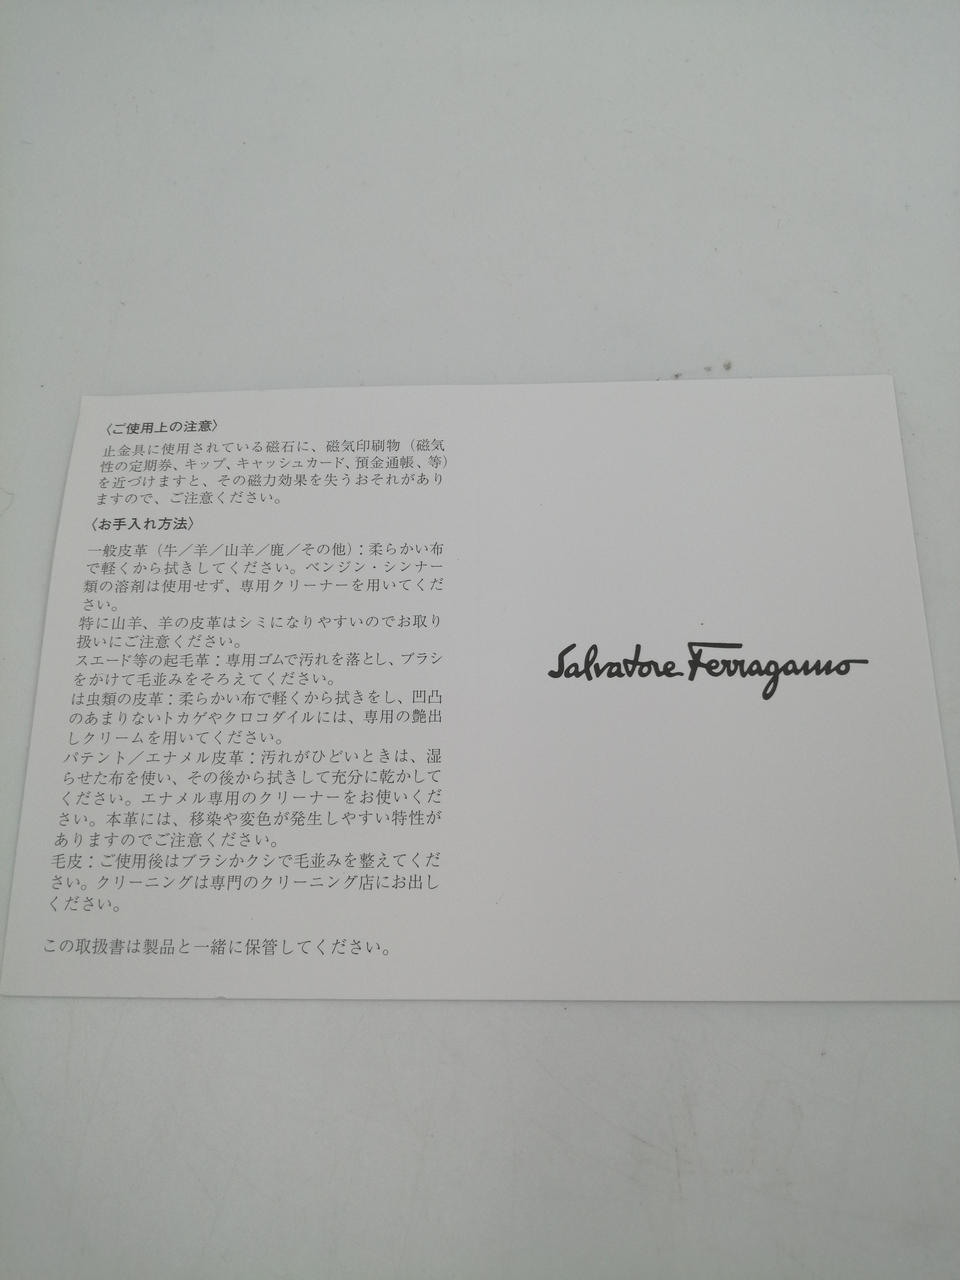 〈ご使用上の注意〉
止金具に使用されている磁石に、磁気印刷物（磁気
性の定期券、キップ、キャッシュカード、預金通帳、等）
を近づけますと、その磁力効果を失うおそれがあり
ますので、ご注意ください。
〈お手入れ方法〉
一般皮革（牛／羊／山羊／鹿／その他）：柔らかい布
で軽くから拭きしてください。ベンジン・シンナー
類の溶剤は使用せず、専用クリーナーを用いてくだ
さい。
特に山羊、羊の皮革はシミになりやすいのでお取り
扱いにご注意ください。
スエード等の起毛革：専用ゴムで汚れを落とし、ブラシ
をかけて毛並みをそろえてください。
は虫類の皮革：柔らかい布で軽くから拭きをし、凹凸
のあまりないトカゲやクロコダイルには、専用の艶出
しクリームを用いてください。
パテント／エナメル皮革：汚れがひどいときは、湿
らせた布を使い、その後から拭きして充分に乾かして
ください。エナメル専用のクリーナーをお使いくだ
さい。本革には、移染や変色が発生しやすい特性が
ありますのでご注意ください。
毛皮：ご使用後はブラシかクシで毛並みを整えてくだ
さい。クリーニングは専門のクリーニング店にお出し
ください。
この取扱書は製品と一緒に保管してください。
Salvatore Ferragamo